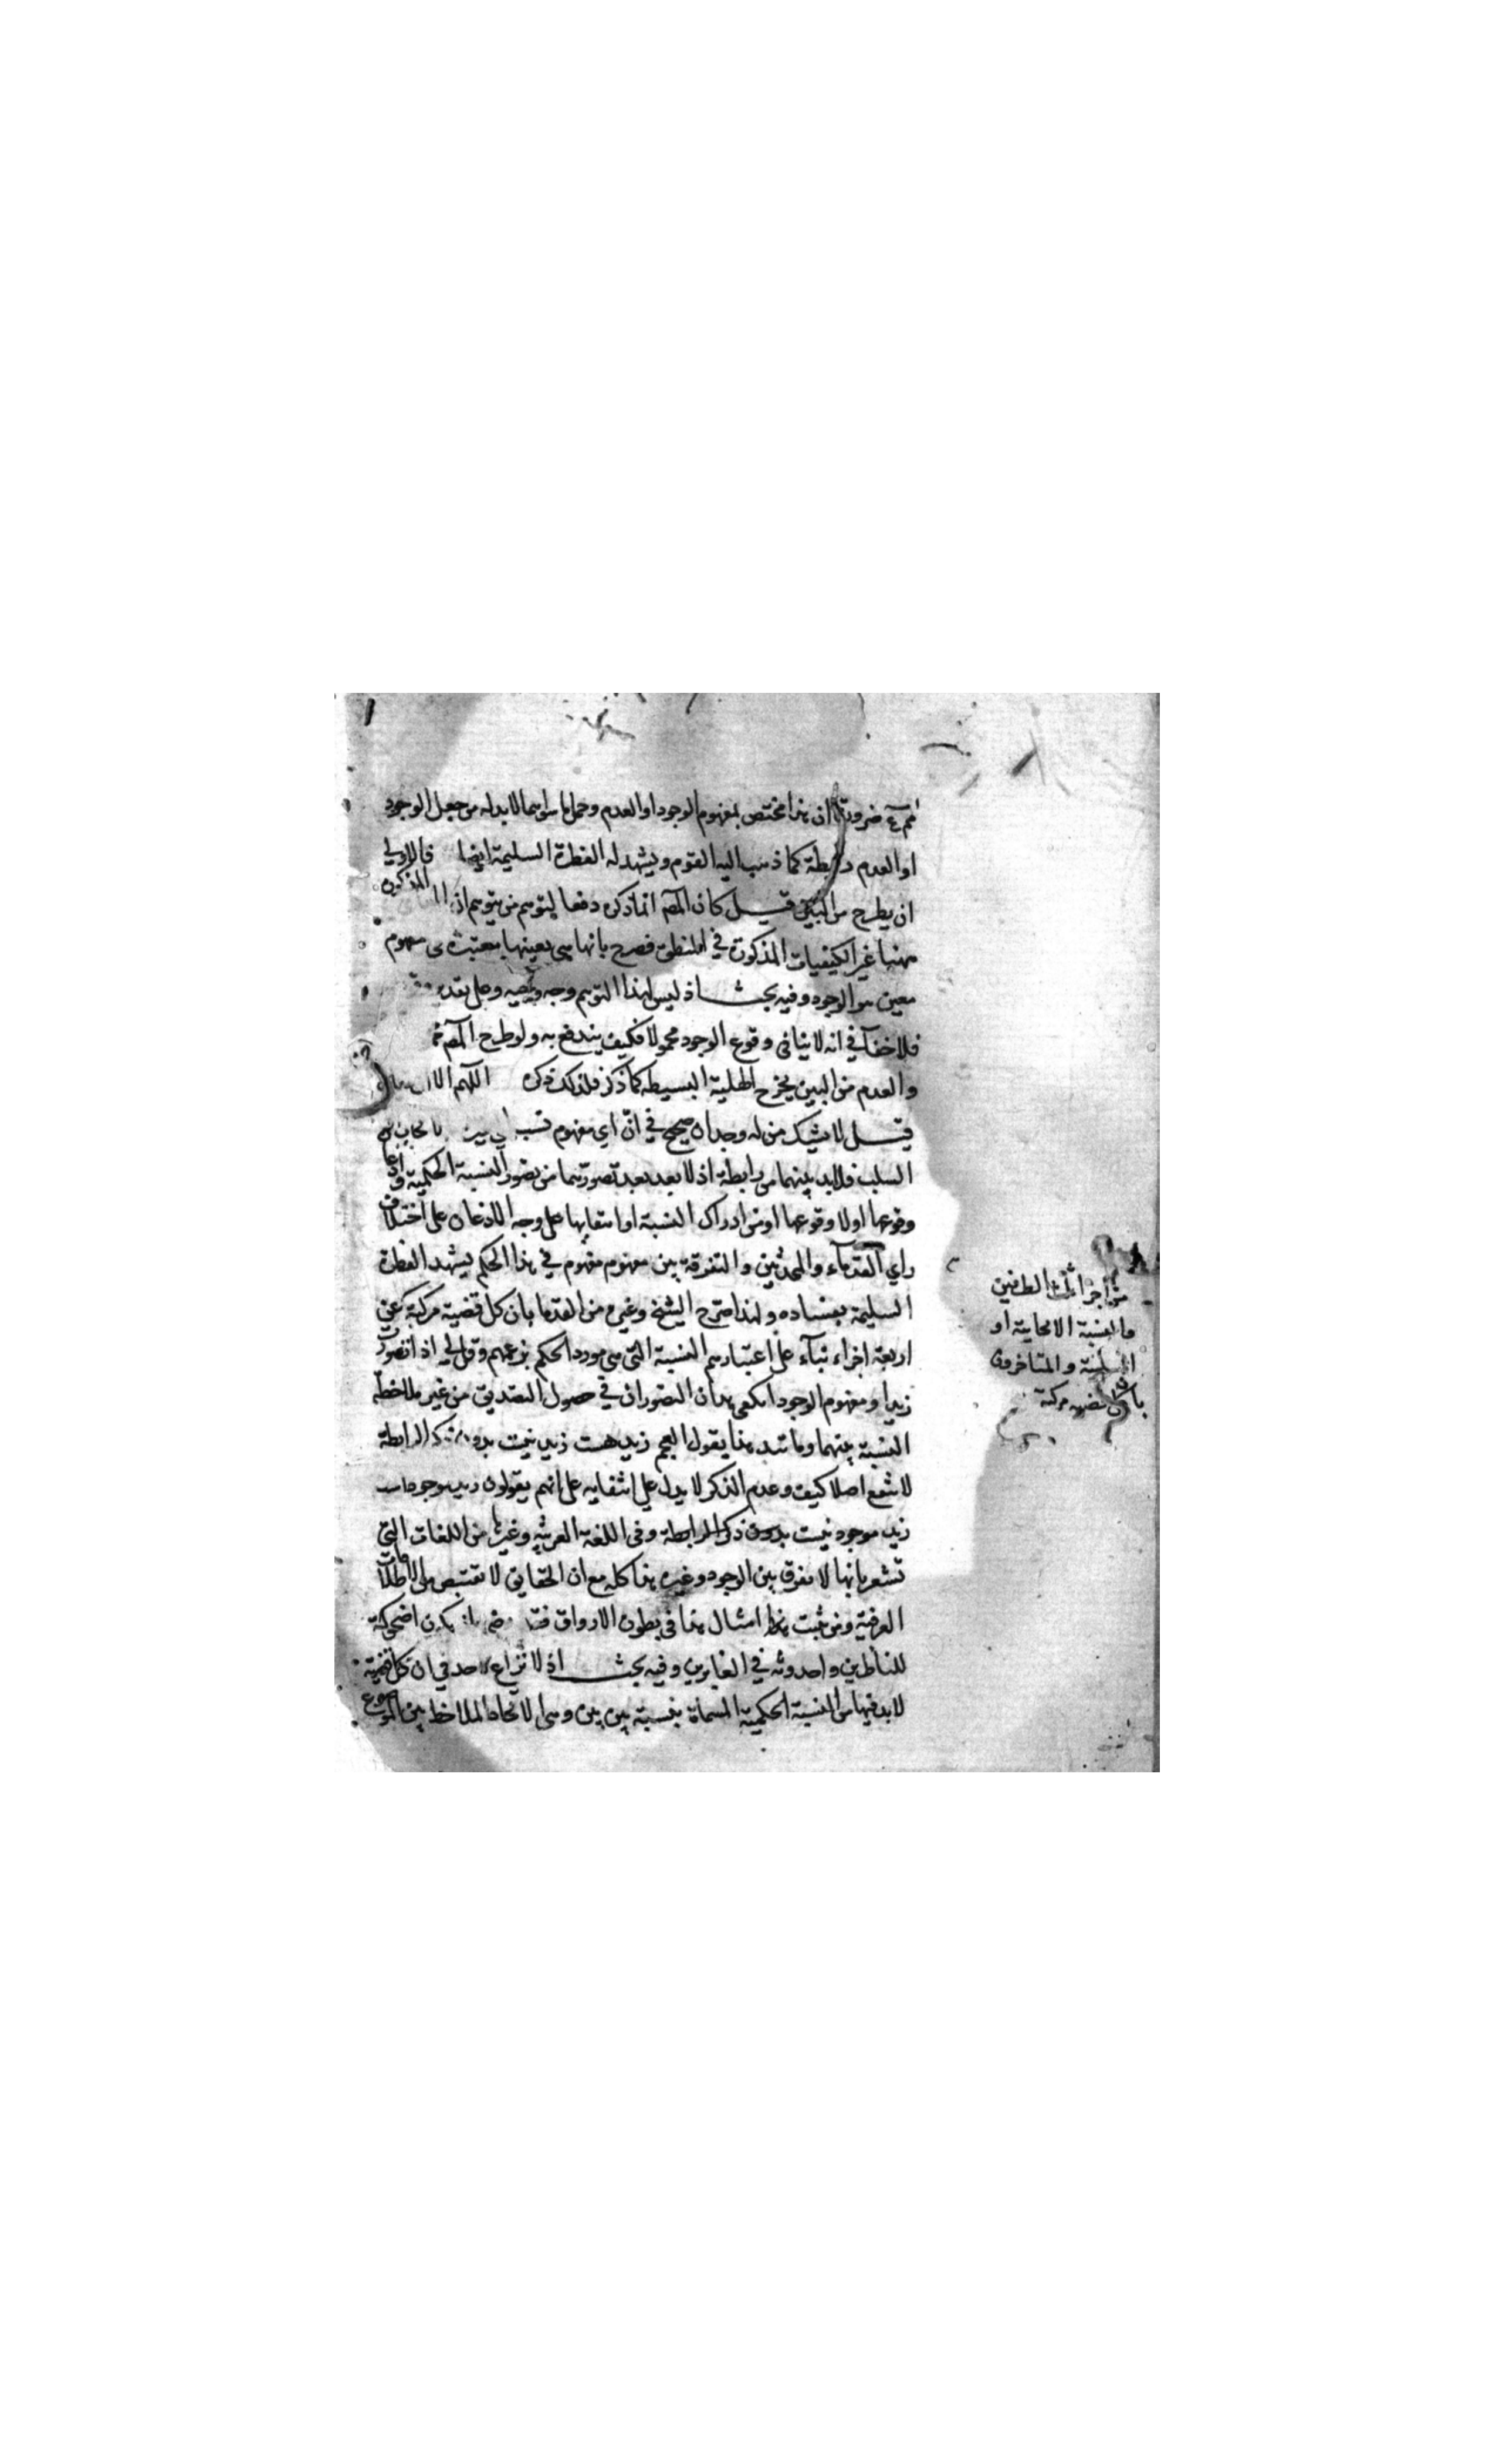 مم ضرورة ان هذا مختص بمفهوم الوجود او العدم وحمل ما سواهما لابد له من جعل الوجود
او العدم رابطة كما ذهب اليه القوم ويشهد له الفطرة السليمة ايضا فالاولى
ان يطرح من البين قيل كان المصـ انما ذكره دفعا لتوهم من يتوهم ان المذكورة
ههنا غير الكيفيات المذكورة في المنطق فصرح بانها هي بعينها معتبرة في مفهوم
معين هو الوجود وفيه بحث اذ ليس لهذا التوهم وجه وجيه وعلى تقدير
فلا خفآ في انه لا ينافي وقوع الوجود محمولا فكيف يندفع به ولو طرح المصـ
والعدم من البين يخرج الهلية البسيطة كما ذكر فلذلك ذكره اللهم الا ان يقال
قيل لا يشك من له وجدان صحيح في ان اي مفهوم نسب بالايجاب او
السلب فلابد بينهما من رابطة اذ لابد بعد تصورهما من تصور النسبة الحكمية واذعان
وقوعها اولا وقوعها او من ادراك النسبة او انتفائها على وجه الاذعان على اختلاف
راي القدمآء والمحدثين والتفرقة بين مفهوم مفهوم في هذا الحكم يشهد الفطرة
السليمة بفساده ولهذا صرح الشيخ وغيره من القدما بان كل قضية مركبة عن
اربعة اجزاء بنآء على اعتبارهم النسبة التي هي مورد الحكم بزعمهم وقل لي اذا تصورت
زيدا ومفهوم الوجود ايكفي هذان التصوران في حصول التصديق من غير ملاحظة
النسبة بينهما وما شبه هذا يقول العجم زيد هست زيد نيست بدون ذكر الرابطة
لا ينفع اصلا كيف وعدم الذكر لا يدل على انتفائه على انهم يقولون زيد موجود است
زيد موجود نيست بدون ذكر الرابطة وفي اللغة العربية وغيرها من اللغات التي
تشعر بانها لا تفرق بين الوجود وغيره هذا كله مع ان الحقايق لا تقتنص من الاطلاقات
العرفية ومن يثبت هذا امثال هذا في بطون الاوراق فقد رضي بان يكون اضحوكة
للناظرين واحدوثة في الغابرين وفيه بحث اذ لا نزاع لاحد في ان كل قضية
لابد فيها من النسبة الحكمية المسماة بنسبة بين بين وهي الاتحاد الملاحظ بين الموضوع
من اجزاء ثلثة الطرفين
والنسبة الايجابية او
السلبية والمتاخرون
بان القضية مركبة